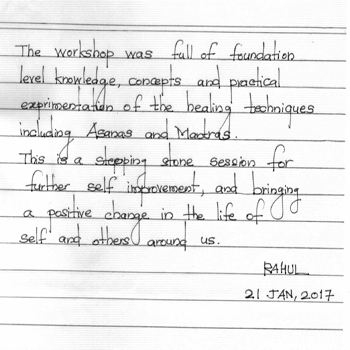 The workshop was full of foundation
level knowledge, concepts and practical
exprimentation of the healing techniques
including Asanas and Madras.
This is a stepping stone session for
further self improvement, and bringing
a positive change in the life of
self and others around us.
RAHUL
21 JAN, 2017